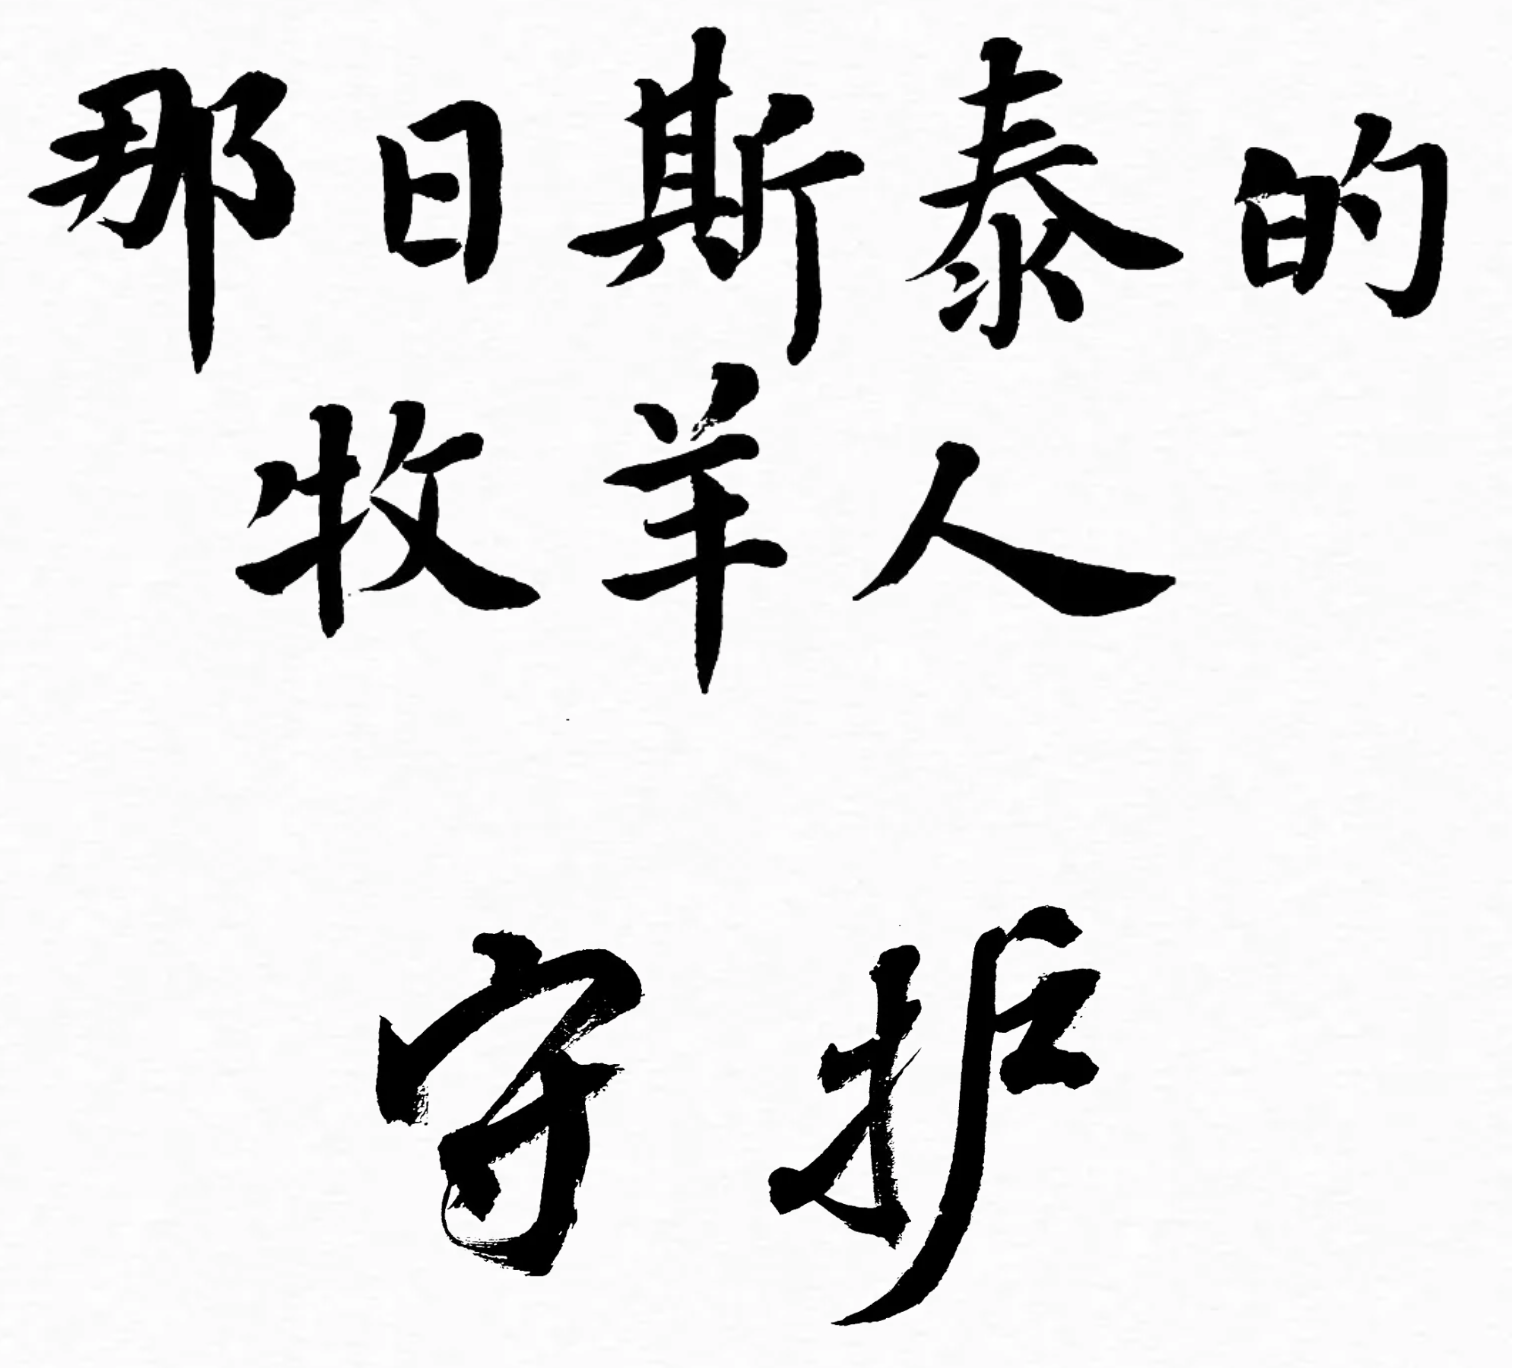 那日斯泰的
牧羊人
守护